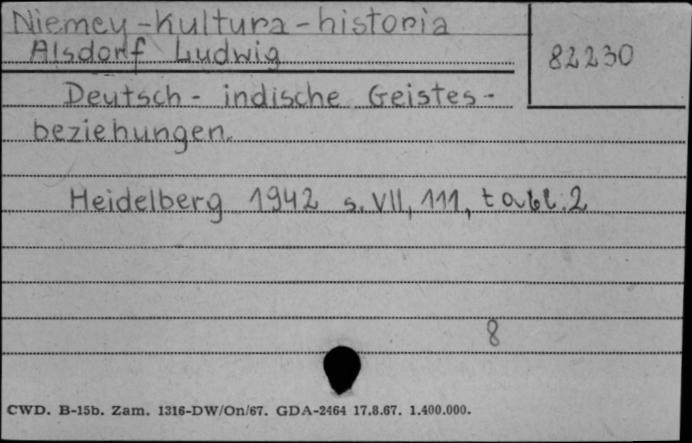 Niemcy - kultura - historia
Alsdorf Ludwig
82230
Deutsch - indische Geistes-
beziehungen.
Heidelberg 1942 s. VII, 111, tabl. 2
8
CWD. B-15b. Zam. 1316-DW/On/67. GDA-2464 17.8.67. 1.400.000.